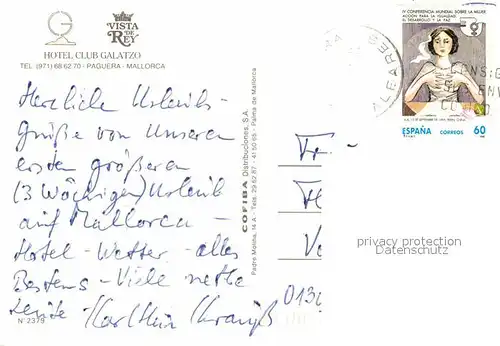 VISTA
DE
REY
HOTEL CLUB GALATZO
TEL (971) 68 62 70 - PAGUERA - MALLORCA
Herzliche Urlaubs-
Grüße von Unseren
ersten größeren
(3 Wöchigen) Urlaub
auf Mallorca -
Hotel - Wetter - alles
Bestens - Viele nette
Leute
N° 2379
COFIBA Distribuciones, S.A.
Padre Molina, 14 A - Tels. 29 62 87 - 41 50 95 - Palma de Mallorca
IV CONFERENCIA MUNDIAL SOBRE LA MUJER
ACCION PARA LA IGUALDAD
EL DESARROLLO Y LA PAZ
ESPAÑA CORREOS 60
BALEARES
privacy protection
Datenschutz